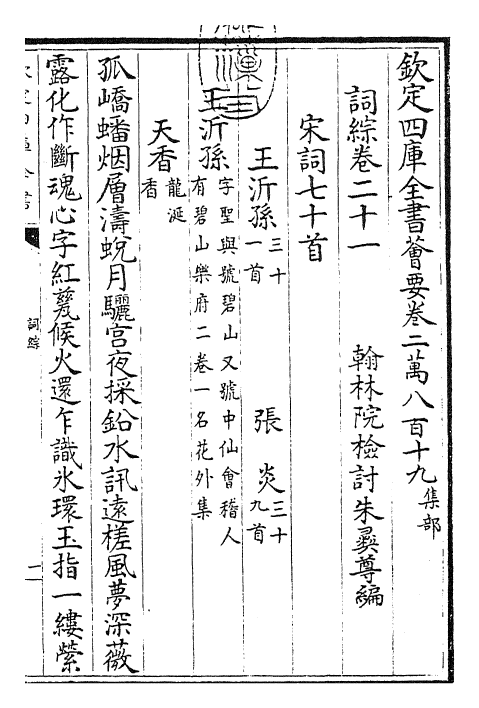 欽定四庫全書薈要卷二萬八百十九集部
詞綜卷二十一
翰林院檢討朱彝尊編
宋詞七十首
王沂孫三十一首
張炎三十九首
王沂孫字聖與號碧山又號中仙會稽人
有碧山樂府二卷一名花外集
天香龍涎香
孤嶠蟠烟層濤蛻月驪宫夜採鉛水訊遠槎風夢深薇
露化作斷魂心字紅甆候火還乍識氷環玉指一縷縈
詞綜
一